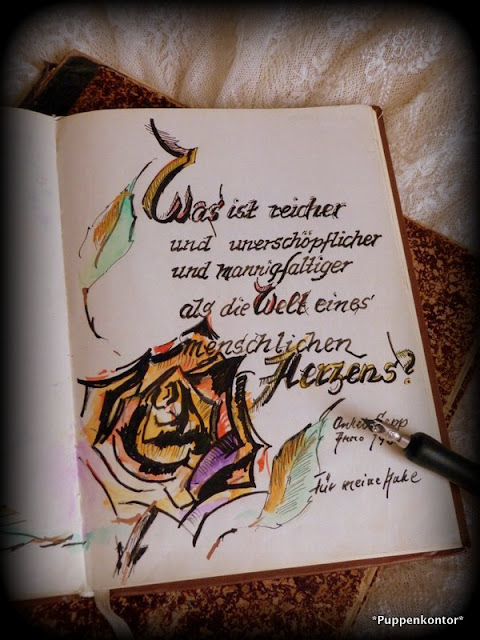 Was ist reicher
und unerschöpflicher
und mannigfaltiger
als die Welt eines
menschlichen
Herzens?
Anno
Für meine
*Puppenkontor*